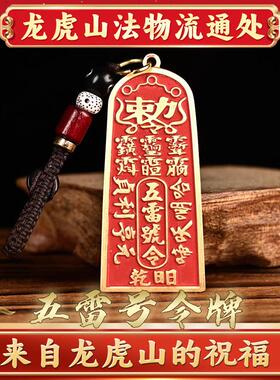 龙虎山法物流通处
勅
五雷號令
貞利
亨元
乾
明
五雷号令牌
来自龙虎山的祝福